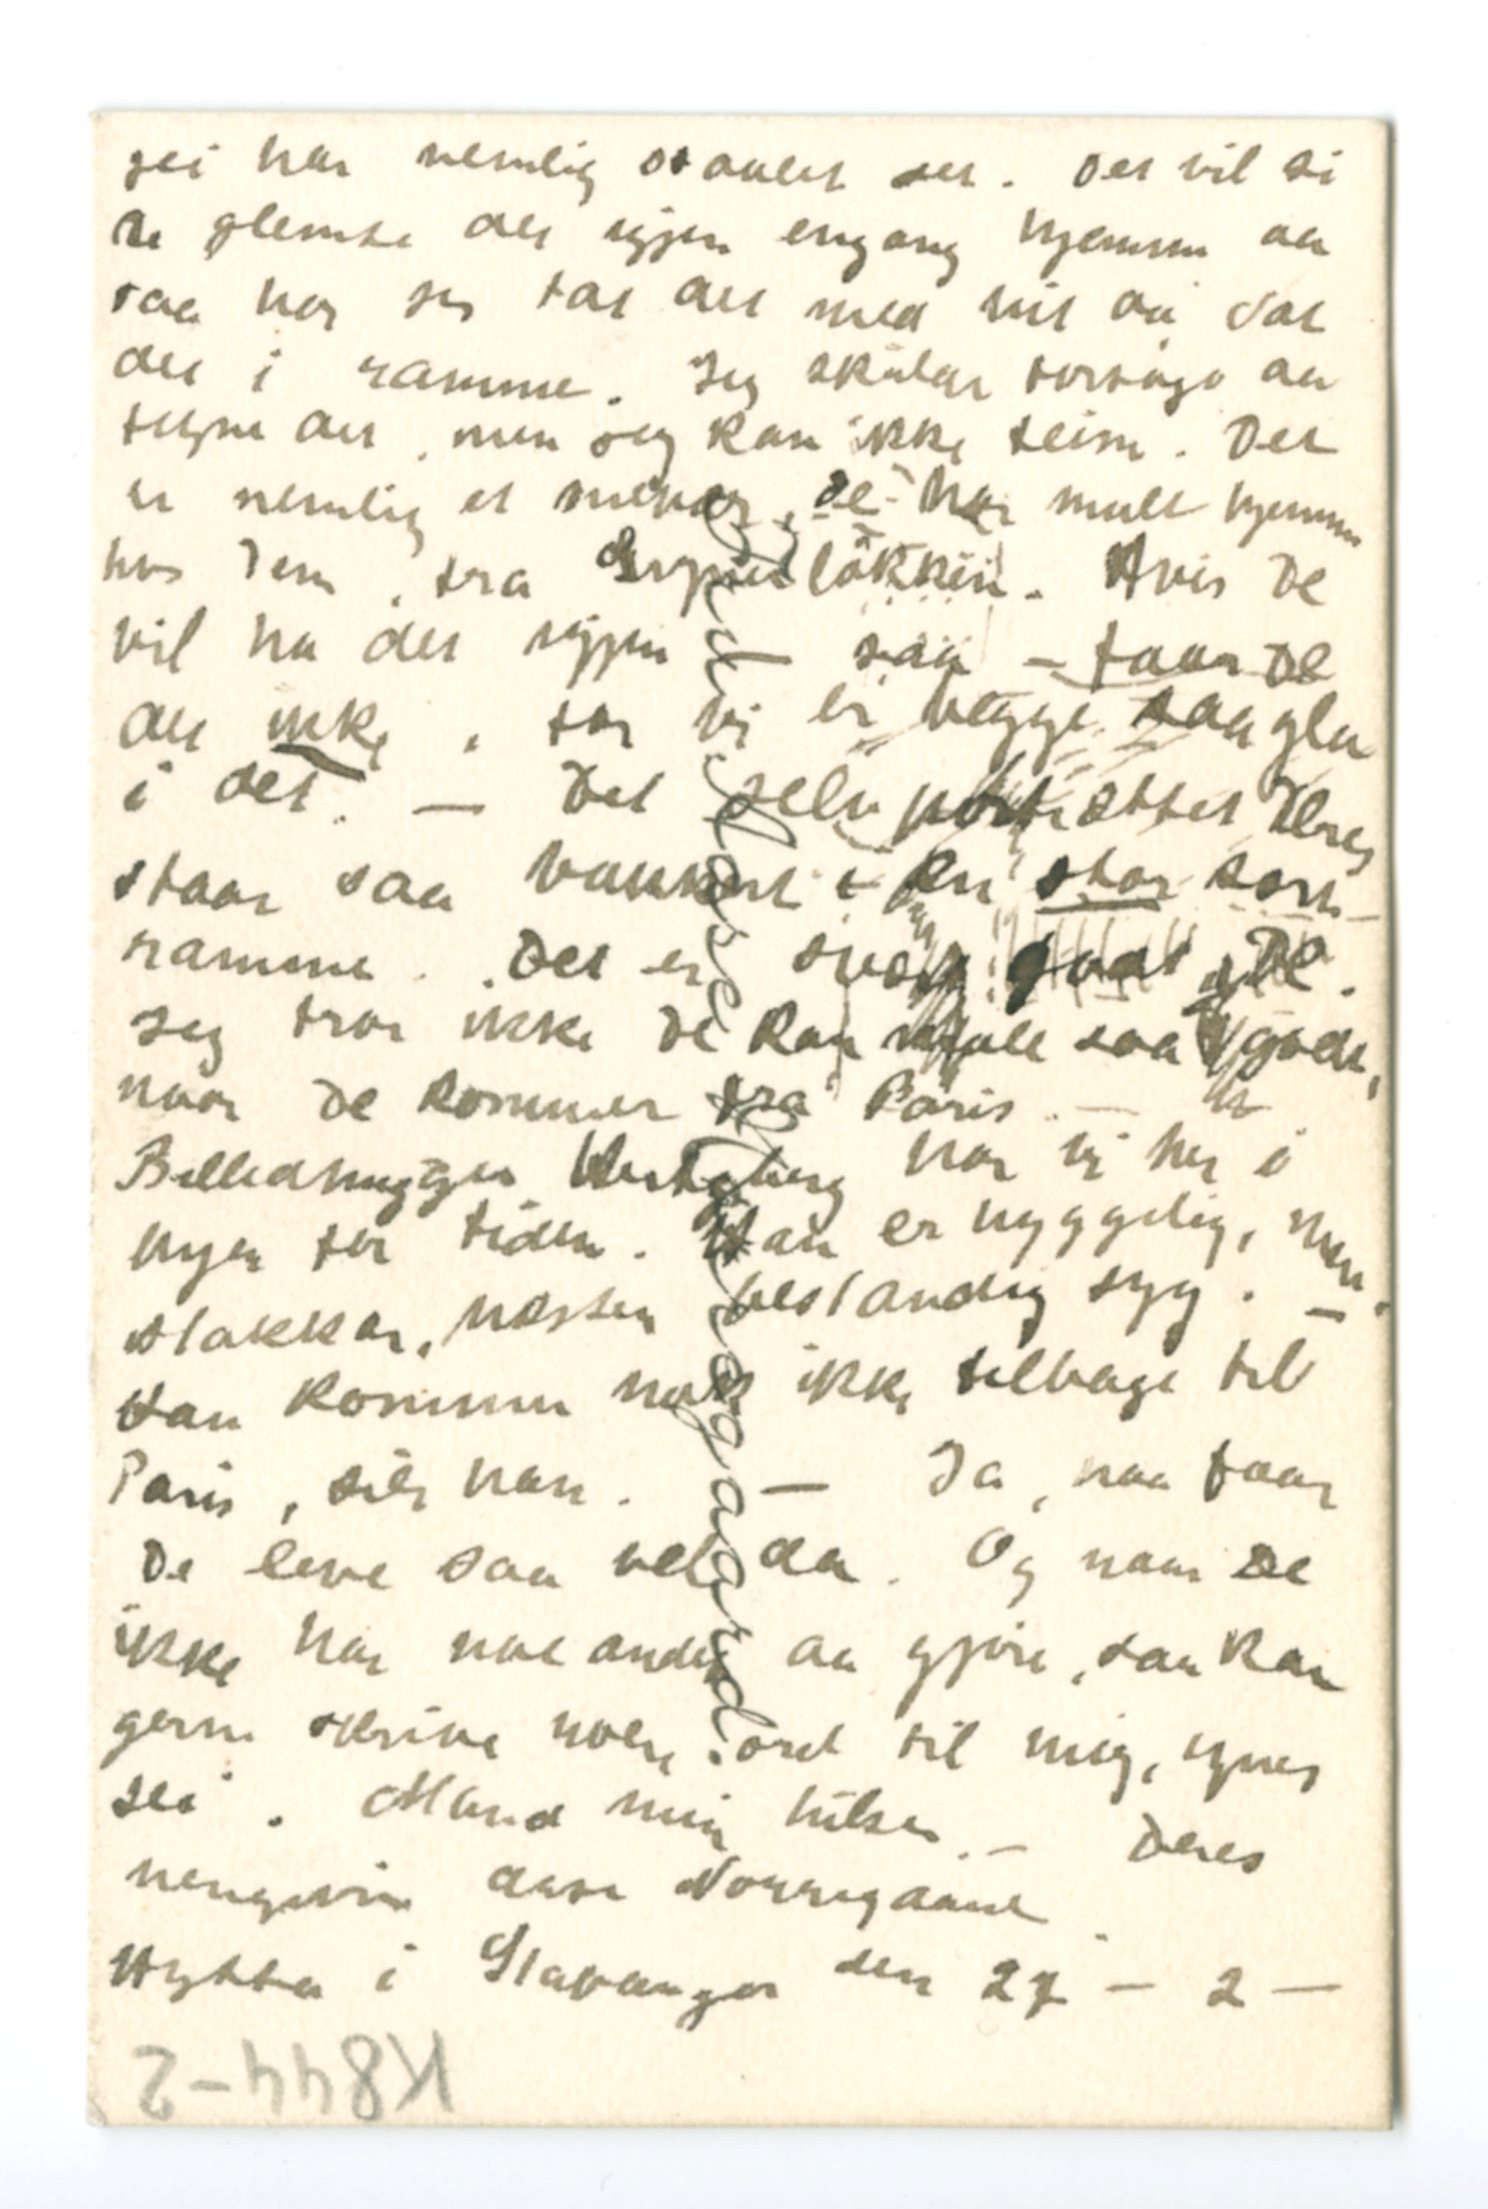 jei har nemlig staalet det. Det vil si
De glemte det igjen engang hjemme aa
saa har jeg tat det med hit aa sat
det i ramme. Jeg skulde forsøge aa
tegne det, men jeg kan ikke teine. Det
er nemlig et de har malt hjemme
hos Dem, fra løkken. Hvis De
vil ha det igjen — saa — faar De
det ikke, for vi er begge saa gla
i det. — Det selvportrættet Deres
staar saa vakkert i en stor sort
ramme. Det er svært godt, De.
Jeg tror ikke De kan male saa godt,
naar De kommer fra Paris. —
Billedhugger har vi her i
byen for tiden. Han er hyggelig, men
stakkar, næsten bestandig syg. —
Han kommer nok ikke tilbage til
Paris, sier han. — Ja, naa faar
De leve saa vel da. Og naar De
ikke har noe andet aa gjøre, saa kan
gjerne skrive noen ord til mig, synes
jei. Mand min hilser. — Deres
hengivne Aase Nørregaard
Hytta i Stavanger den 27 – 2 –
Aase Nørregaard
K844-2